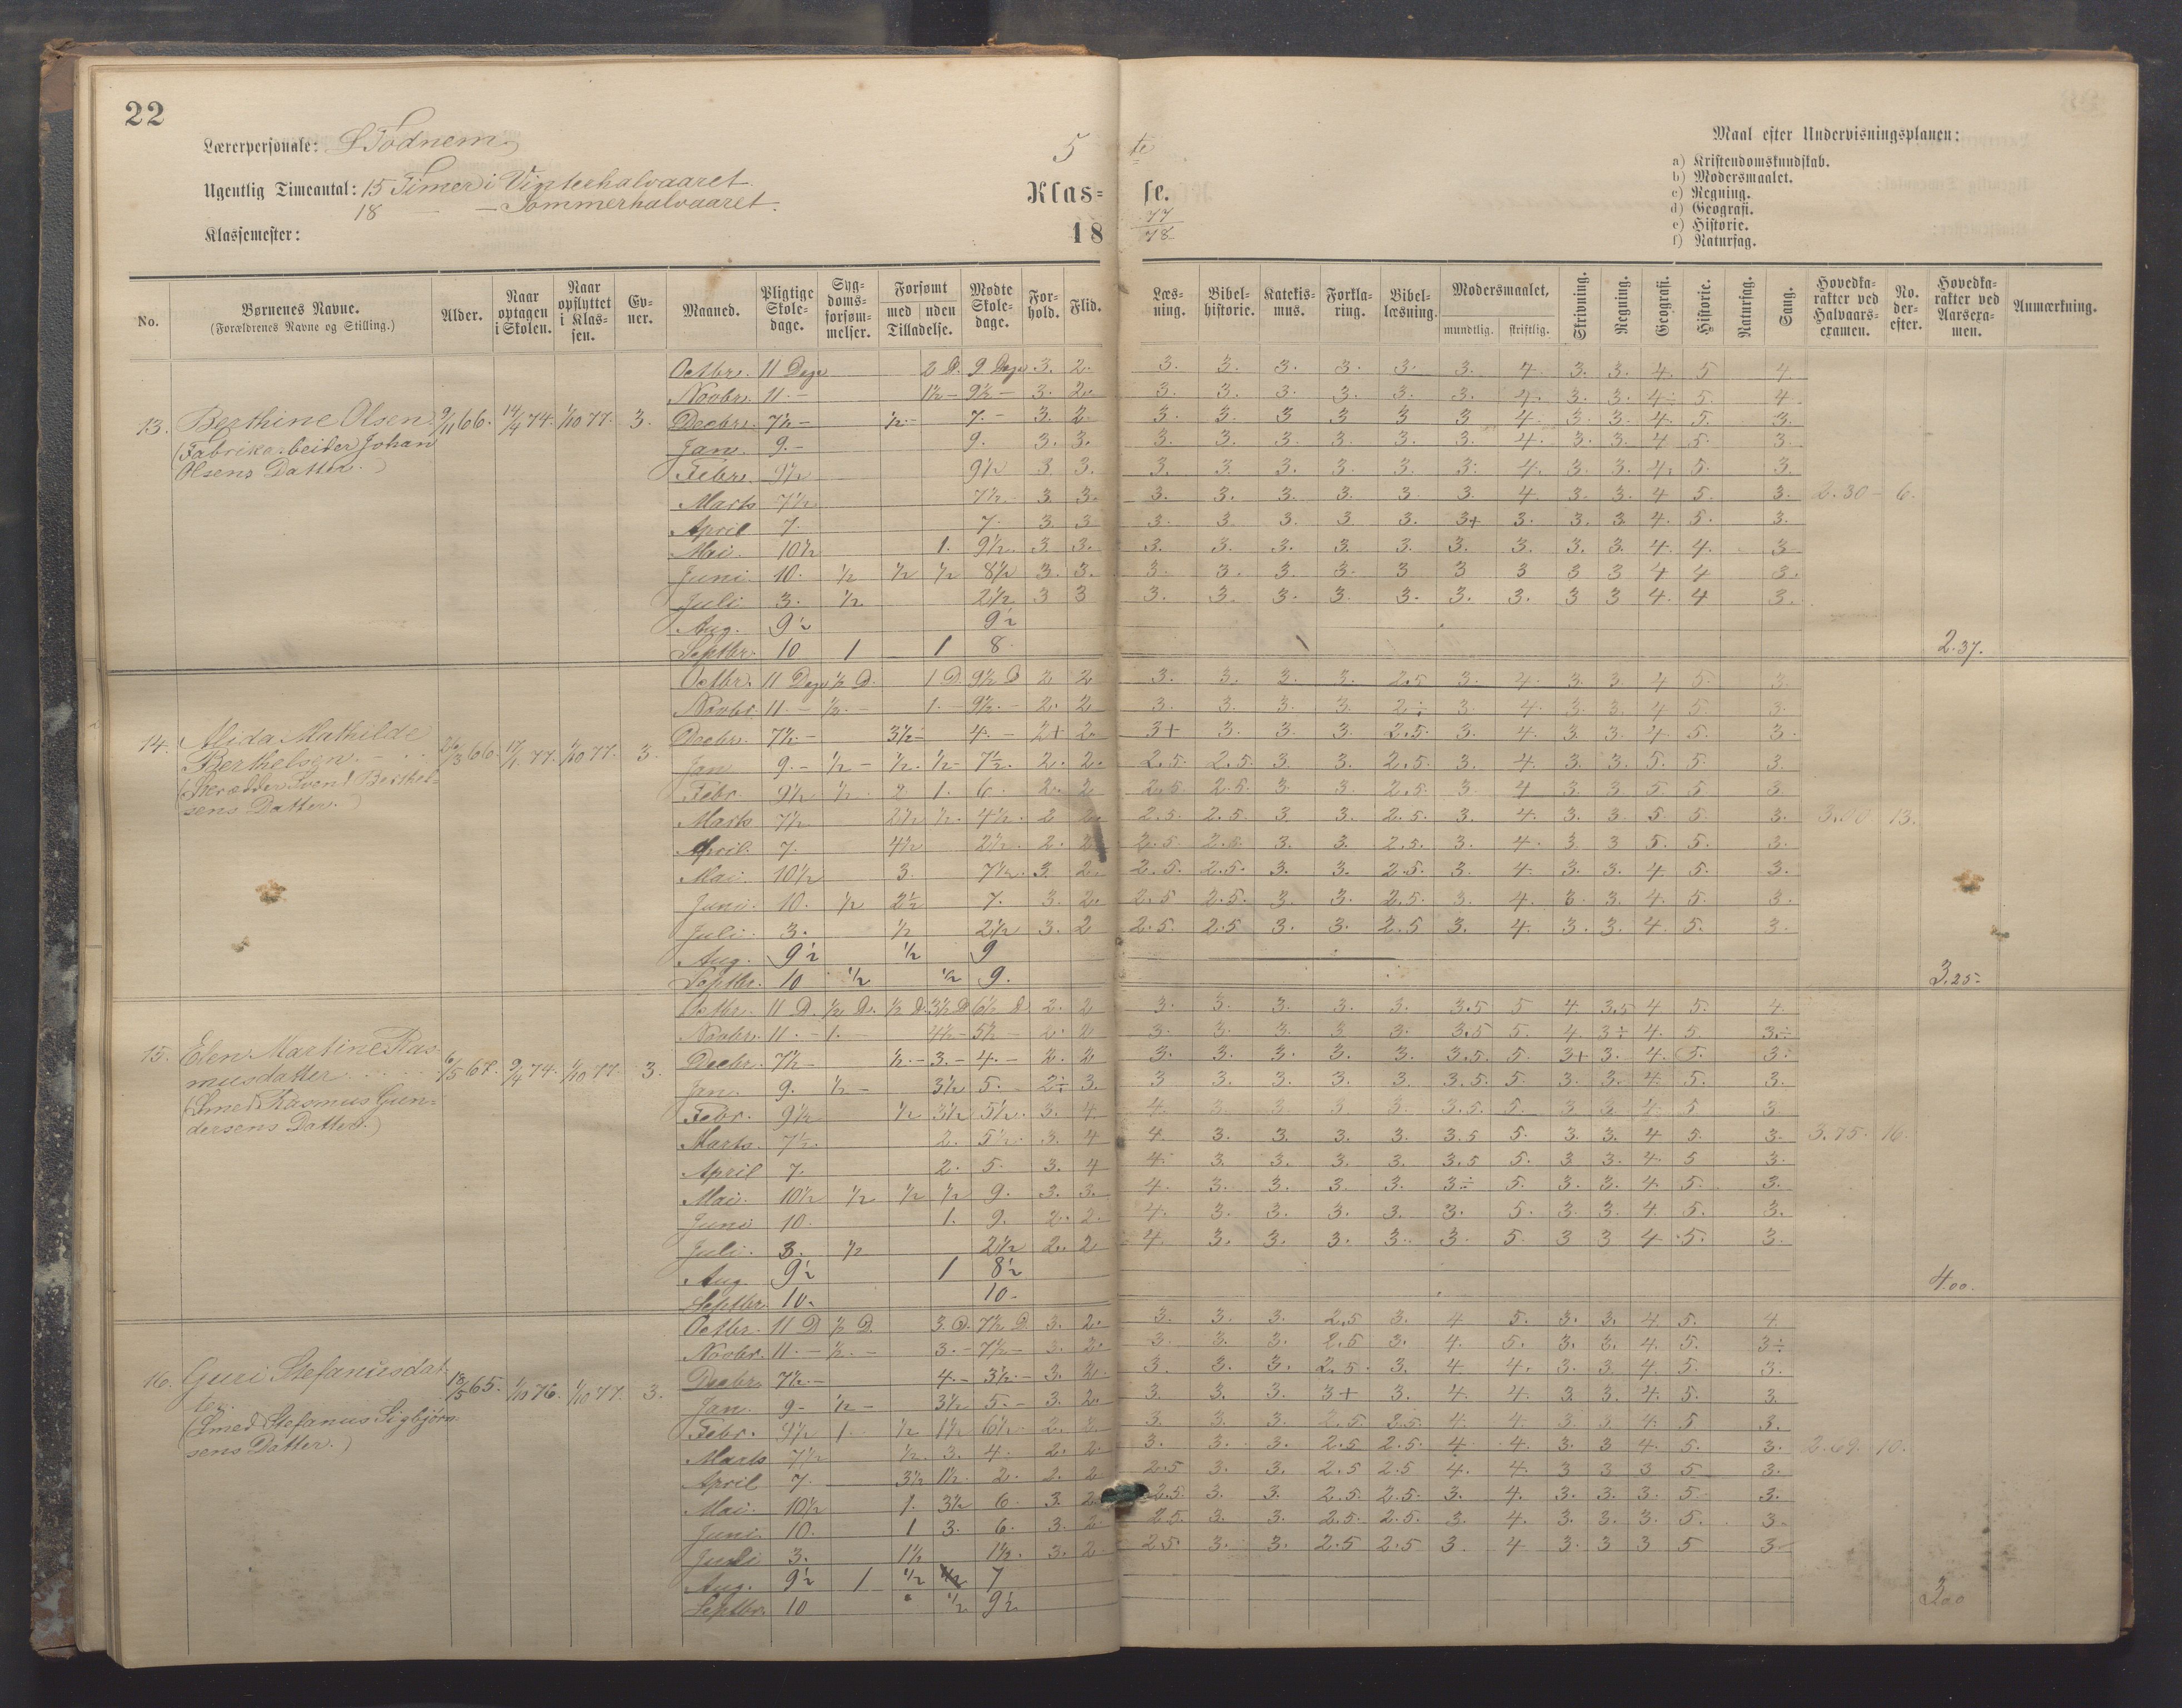 22
Lærerpersonale: S Todnem.
Ugentlig Timeantal: 15 Timer i Vinterhalvaaret
18 — — Sommerhalvaaret.
Klassemester:
5 te
Klas= se.
18 77/78
Maal efter Undervisningsplanen:
a) Kristendomskundskab.
b) Modersmaalet.
c) Regning.
d) Geografi.
e) Historie.
f) Naturfag.
No. | Børnenes Navne. (Forældrenes Navne og Stilling.) | Alder. | Naar optagen i Skolen. | Naar opflyttet i Klas-sen. | Ev-ner. | Maaned. | Pligtige Skole-dage. | Syg-doms-forsøm-melser. | Forsømt med uden Tilladelse. | Mødte Skole-dage. | For-hold. | Flid. | Læs-ning. | Bibel-historie. | Katekis-mus. | Forkla-ring. | Bibel-læsning. | Modersmaalet, mundtlig. skriftlig. | Skrivning. | Regning. | Geografi. | Historie. | Naturfag. | Sang. | Hovedka-rakter ved Halvaars-examen. | No. der-efter. | Hovedka-rakter ved Aarsexa-men. | Anmærkning.
13. Berthine Olsen 9/11 66. 14/4 74. 1/10 77. 3.
(Fabrikarbeider Johan
Olsens Datter.)
Octbr. 11 Dage 2 D. 9 Dage 3. 2. 3. 3. 3. 3. 3. 3. 4. 3. 3. 4. 5 4
Novbr. 11. — 1½ — 9½ — 3. 2. 3. 3. 3. 3. 3. 3. 4. 3. 3. 4. 5. 4.
Decbr. 7½ — ½ — 7. — 3. 2 3. 3. 3 3 3 3 4 3. 3. 4. 5. 3.
Jan. 9. — 9. 3. 3. 3. 3. 3. 3. 3. 3. 4. 3. 3. 4 5. 3.
Febr. 9½ 9½ 3 3. 3. 3. 3. 3. 3. 3. 4. 3. 3. 4. 5. 3.
Marts 7½ 7½ 3 3. 3. 3. 3. 3. 3. 3. 4 3. 3. 4 5. 3. 2.30 6.
April 7. 7. 3. 3 3. 3. 3. 3. 3. 3+ 3. 3. 3 4. 5. 3.
Mai. 10½ 1. 9½ 3. 3. 3. 3. 3. 3. 3. 3. 3. 3. 3. 4. 4. 3
Juni. 10. ½ ½ ½ 8½ 3. 3. 3. 3. 3. 3. 3 3 3 3 3 4 4 3.
Juli 3. ½ 2½ 3 3 3. 3. 3. 3. 3. 3. 3. 3 3 4. 4 3.
Aug. 9½ 9½
Septbr. 10 1 1 8. 2.37.
14. Alida Mathilde 26/3 66. 17/1 77. 1/10 77. 3.
Berthelsen.
(Skrædder Svend Berthel=
sens Datter.)
Octbr. 11 Dage ½ D. 1 D. 9½ D 2 2 3. 3. 3. 3. 2.5 3. 4. 3. 3. 4 5. 3.
Novbr. 11 — ½. — 1. — 9½. — 2. 2 3. 3. 3. 3. 2÷ 3. 4. 3. 3. 4 5. 3.
Decbr. 7½ — 3½ — 4. — 2+ 2 3+ 3. 3. 3. 2.5. 3. 4. 3. 3. 4. 5. 3.
Jan 9. — ½ — ½. ½ — 7½. 2. 2. 2.5. 2.5. 3. 3. 2.5. 3. 4. 3. 3. 5. 5. 3
Febr. 9½ ½. 2 1. 6. 2. 2 2.5. 2.5. 3. 3. 2.5. 3. 4 3. 3 5 5. 3
Marts 7½ 2½ ½. 4½. 2 2. 2.5. 2.5. 3 3. 2.5. 3. 4. 3. 3. 5. 5. 3. 3.00 13.
April. 7. 4½ 2½. 2. 2 2.5. 2.5. 3. 3. 2.5. 3. 4. 3. 3 5. 5. 3.
Mai. 10½ 3. 7½. 3 2. 2.5. 2.5. 3. 3. 2.5. 3. 4. 3. 3. 4. 5. 3.
Juni. 10. ½ 2½ 7. 3. 2. 2.5 2.5. 3. 3. 2.5. 3. 4. 3. 3. 4. 5. 3.
Juli. 3. ½ 2½ 3. 2 2.5. 2.5 3. 3. 2.5 3. 4. 3. 3. 4 5. 3.
Aug. 9½ ½ 9
Septbr. 10 ½ ½ 9. 3.25.
15. Elen Martine Ras- 6/5 67. 9/4 74. 1/10 77. 3.
musdatter
(Smed Rasmus Gun=
dersens Datter.)
Octbr. 11 D. ½ D. ½ D. 3½ D 6½ D. 2. 2 3. 3. 3. 3. 3. 3.5 5 4. 3.5 4 5. 4.
Novbr. 11. — 1. 4½ — 5½ — 2. 2 3. 3. 3. 3 3. 3.5 5. 4 3÷ 4. 5. 3.÷
Decbr. 7½ — ½. — 3. — 4. — 2. 2 3. 3. 3. 3. 3. 3.5. 5. 3+ 3. 4. 5. 3.
Jan. 9. ½ — 3½ 5. — 2÷ 3. 3 3. 3. 3. 3. 3.5. 5. 3. 3. 4. 5. 3.
Febr. 9½ ½ 3½ 5½. 3. 4. 4. 3. 3. 3 3. 3.5. 5. 3 3. 4. 5 3
Marts. 7½. 2. 5½. 3. 4 4. 3. 3. 3. 3. 3.5 5. 3. 3. 4 5. 3. 3.75. 16.
April 7. 2. 5. 3. 4 4. 3. 3. 3. 3. 3.5 5. 3 3. 4. 5 3.
Mai. 10½ ½ ½ ½ 9. 3. 3. 4. 3. 3. 3. 3. 3÷ 5. 3. 3. 4 5. 3.
Juni 10. 1. 9. 2. 2. 4. 3. 3. 3. 3. 3. 5. 3 3. 4 5. 3.
Juli. 3. ½ 2½ 2. 2 4. 3. 3. 3. 3. 3. 5. 3 3 4 5. 3.
Aug. 9½ 1 8½
Septbr. 10. 10. 4.00.
16. Guri Stefanusdat- 18/5 65. 1/10 76. 1/10 77. 3.
ter.
(Smed Stefanus Sigbjørn
sens Datter.)
Octbr. 11 D ½ D. 3 D. 7½ D. 3. 2. 3. 3. 3. 2.5 3. 4 5. 3. 3. 4 5. 4
Novbr. 11. — ½. — 3. — 7½ — 3. 2. 3. 3. 3. 2.5 3. 4. 5. 3. 3. 4. 5. 3÷
Decbr. 7½. — 4. — 3½. — 3. 2. 3. 3. 3. 2.5. 3. 4 4. 3. 3 4. 5. 3.
Jan. 9 — ½ — 3½ 5. — 3. 2. 3. 3. 3. 3+ 3. 4. 4. 3 3. 4. 5. 3.
Febr. 9½ 1. ½ 1½ 6½ 2. 2. 3. 3. 3. 2.5. 2.5. 4. 4. 3 3 4. 5 3.
Marts 7½ ½. 3. 4. 2. 2. 3. 3. 3. 2.5 2.5. 4 4. 3. 3 4. 5. 3. 2.69. 10.
April 7. 3½ 1½. 2. 2. 2 2.5 3. 3. 2.5 2.5 4. 4. 3 3 3 5 3.
Mai. 10½ 1. 3½ 6. 3. 2. 2.5. 3. 3. 2.5. 2.5. 3. 4. 3. 3. 3. 5. 3.
Juni. 10. 1 3. 6. 3. 2 2.5. 3. 3. 2.5. 2.5. 3. 4. 3. 3. 3. 5. 3.
Juli 3. 1½ 1½. 3. 2. 2.5. 3. 3. 2.5 2.5 3 4 3. 3 3 5 3
Aug. 9½ 1 ½ 7
Septbr. 10 ½ 9½ 3.00